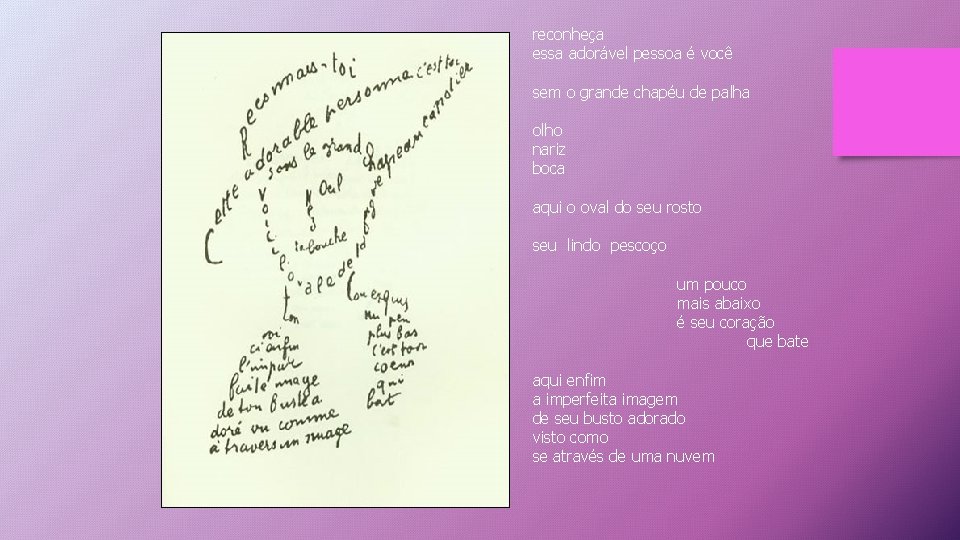 Reconnais-toi
Cette adorable personne c'est toi
sans le grand chapeau canotier
Oeil
Nez
la bouche
Voici l'ovale de ta figure
Ton
Cou exquis
Voi
ci enfin
l'impar
faite image
de ton buste a
doré vu comme
à travers un nuage
Un peu
plus bas
c'est ton
coeur
qui
bat
reconheça
essa adorável pessoa é você
sem o grande chapéu de palha
olho
nariz
boca
aqui o oval do seu rosto
seu lindo pescoço
um pouco
mais abaixo
é seu coração
que bate
aqui enfim
a imperfeita imagem
de seu busto adorado
visto como
se através de uma nuvem